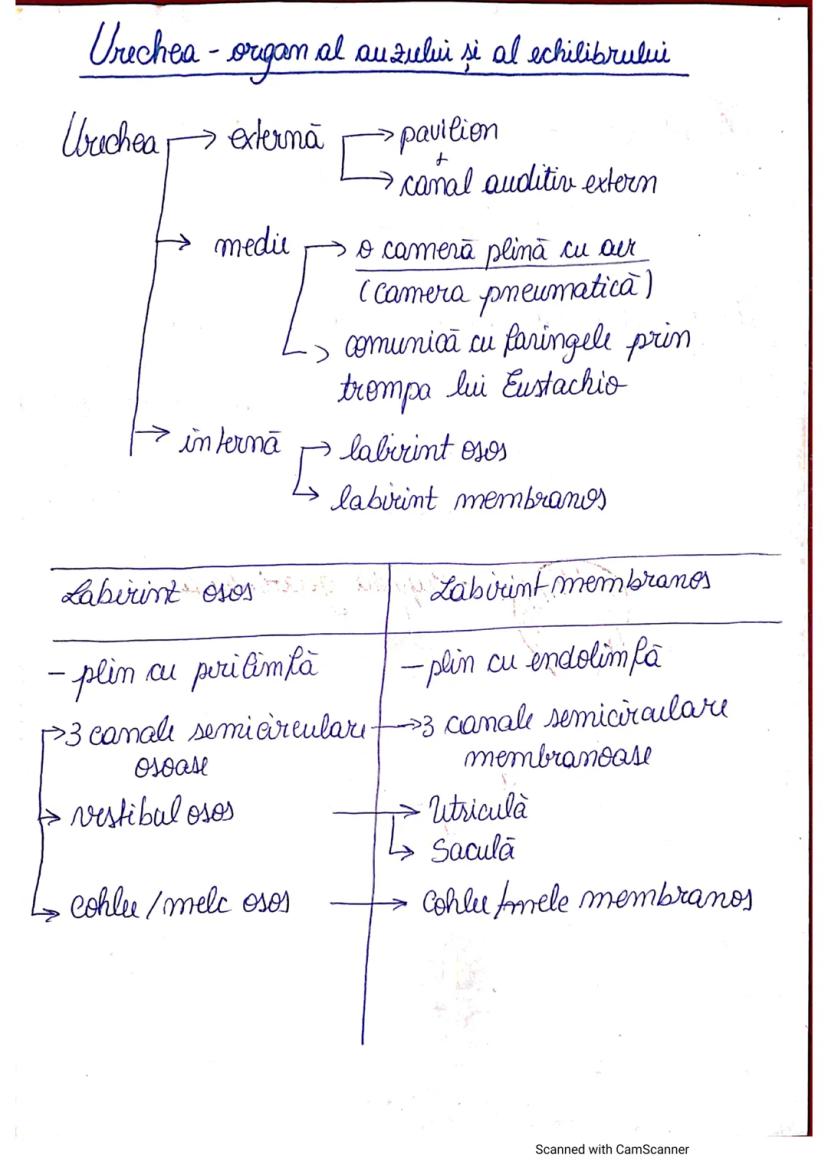 Urechea - organ al auzului și al echilibrului
Urechea → externă → pavilion
+
→ canal auditiv extern
→ medie → o cameră plină cu aer
(camera pneumatică)
→ comunică cu faringele prin
trompa lui Eustachio
→ internă → labirint osos
→ labirint membranos
Labirint osos
Labirint membranos
- plin cu perilimfă
- plin cu endolimfă
→ 3 canale semicirculare → 3 canale semicirculare
osoase
membranoase
→ vestibul osos → Utriculă
→ Saculă
→ cohlee / melc osos → cohlee / melc membranos
Scanned with CamScanner